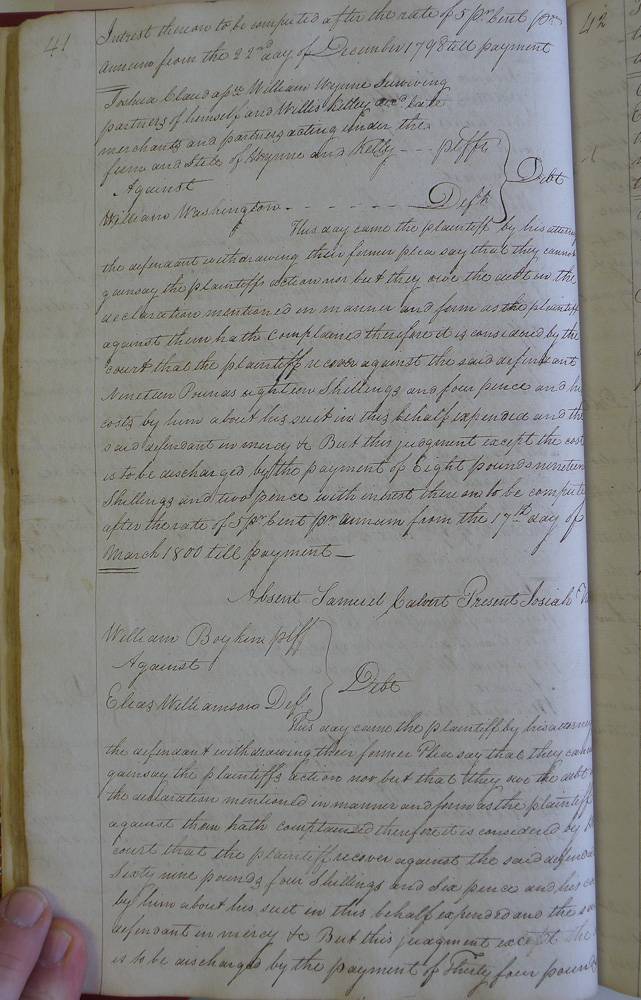 41
Intrest thereon to be computed after the rate of 5 pr Cent pr
annum from the 22nd day of December 1798 till payment
Joshua Claud William Wynne Surviving
partners of himself and Willis Kelley decd late
merchants and partners acting under the
firm and Stile of Wynne and Kelly - - - plffs
Against
Debt
William Washington - - - - - - - Deft
This day came the plaintiff by his attorney
the defendant withdrawing their former plea say that they cannot
gainsay the plaintiffs action nor but they owe the debt in the
declaration mentioned in manner and form as the plaintiff
against them hath Complained therefore it is considered by the
court that the plaintiff recover against the said defendant
Nineteen Pounds eighteen Shillings and four pence and his
costs by him about his suit in this behalf expended and the
said defendant in mercy &c But this judgment except the cost
is to be discharged by the payment of Eight pounds nineteen
Shillings and two pence with interest thereon to be compute
after the rate of 5 pr Cent pr annum from the 17th day of
March 1800 till payment —
Absent Samuel Calvert Present Josiah
William Boykin plff
Against
Debt
Elias Williamson Deft
This day came the plaintiff by his attorney
the defendant withdrawing their former Plea say that they cann
gainsay the plaintiffs action nor but that they owe the debt
the declaration mentioned in manner and form as the plaintiff
against them hath complained therefore it is considered by
court that the plaintiff recover against the said defenda
Sixty nine pounds four Shillings and Six pence and his co
by him about his suit in this behalf expended and the sa
defendant in mercy &c But this judgment except the
is to be discharged by the payment of Thirty four pounds
42